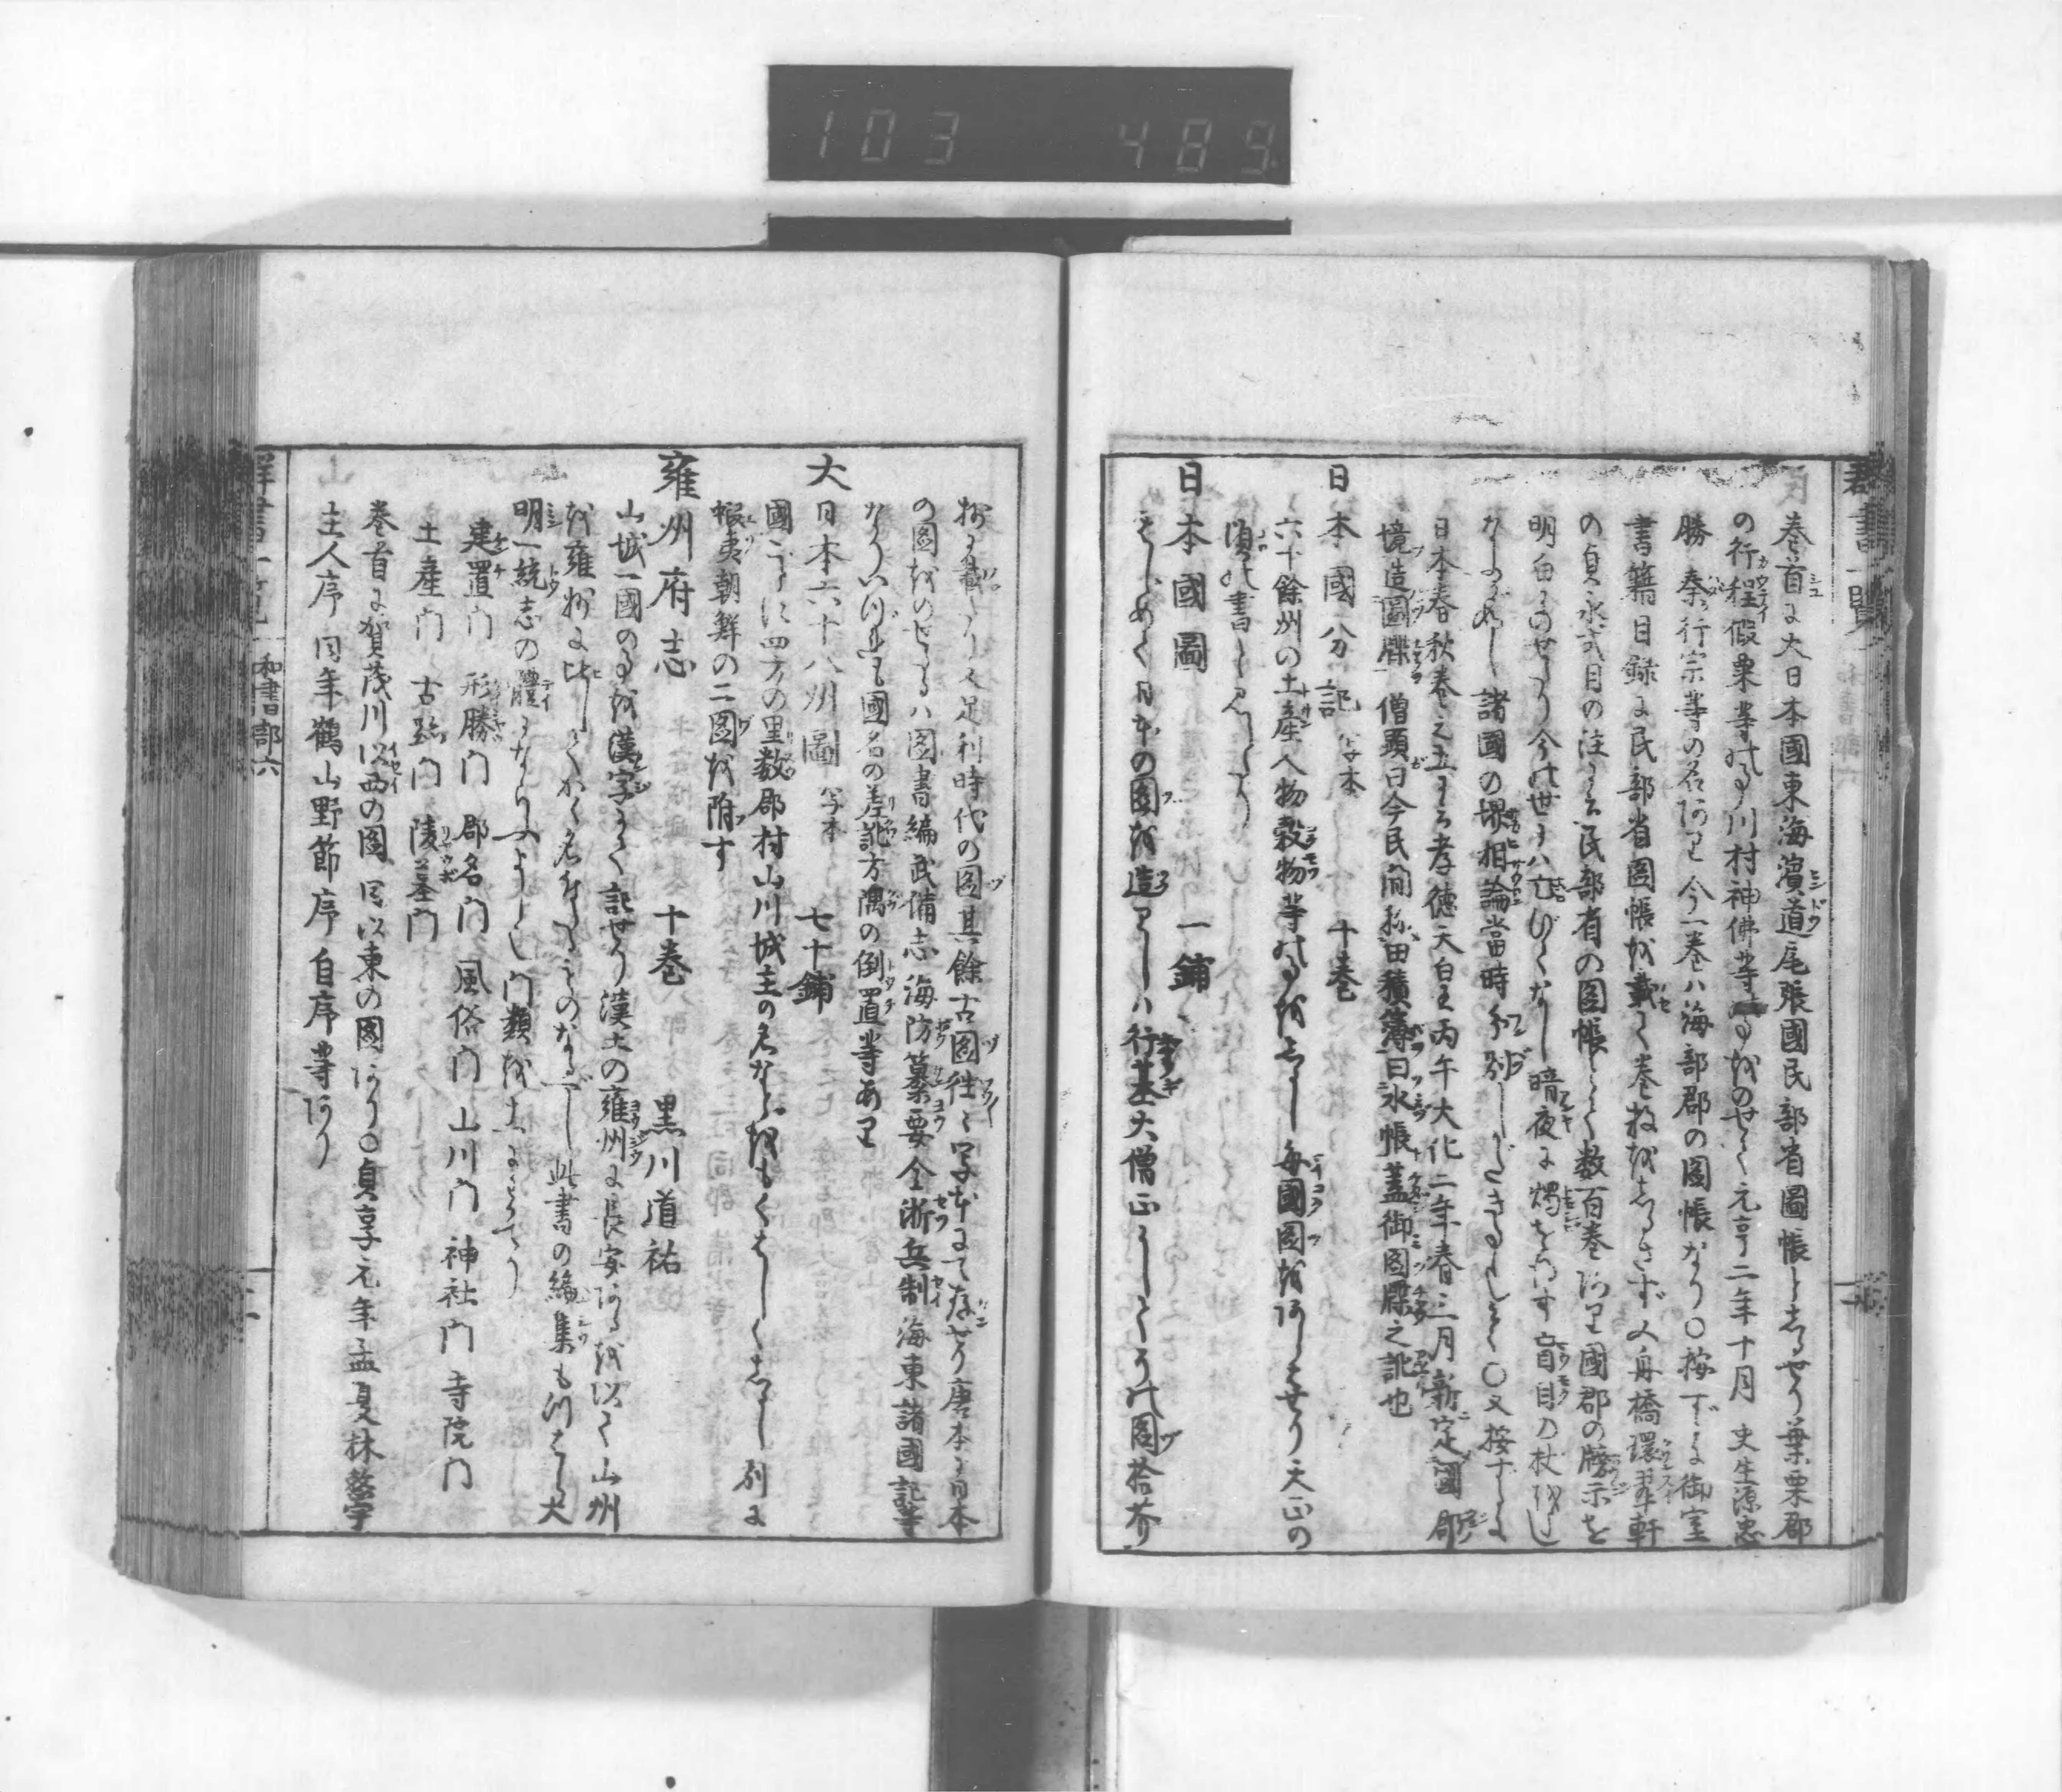 103 489
巻首に大日本國東海濱道尾張國民部省圖帳としるせり葉栗郡
の行程假粟等の事川村神佛等の事をのせて元亨二年十月 史生源忠
勝 秦行宗等の名あり今一巻ハ海部郡の圖帳なり○按ずるに御室
書籍目録に民部省圖帳を載て巻数をしるさず又舟橋環翠軒
の貞永式目の注に民部省の圖帳とて数百巻あり國郡の牓示を
明白にのせたり今の世にハ亡びてなし暗夜に燭をけす盲目の杖をし
なふがごとし 諸國の堺相論當時分別しがたきよし○又按ずるに
日本春秋巻之五に孝徳天皇丙午大化二年春三月新定國郡
境造圖牒 僧顕曰今民間称田積簿曰水帳蓋御図牒之訛也
日本國分記 写本 十巻
六十餘州の土産人物穀物等の事をしるし毎國圖をあらはせり天正の
頃の書と見えたり
日本國圖 一鋪
はじめて日本の圖を造りしハ行基大僧正にしてその圖拾芥
抄に載たり又足利時代の圖其餘古圖往々写本にて存せり唐本に日本
の圖をのせたるハ図書編武備志海防纂要全浙兵制海東諸國記等
なりいづれも國名の差訛方隅の倒置等あり
大日本六十八州圖 写本 七十鋪
國ごとに四方の里数郡村山川城主の名などをもくはしくしるし 別に
蝦夷朝鮮の二図を附す
雍州府志 十巻 黒川道祐
山城一國の事を漢字にて記せり漢土の雍州に長安あるを以て山州
を雍州に比してかく名付たるものなるべし此書の編集も亦大
明一統志の體にならふよし門類を左にあぐ
建置門 形勝門 郡名門 風俗門 山川門 神社門 寺院門
土産門 古跡門 陵墓門
巻首に賀茂川以西の図 同以東の図あり○貞享元年孟夏林整宇
主人序 同年鶴山野節序 自序等あり
群書一覧 和書部六